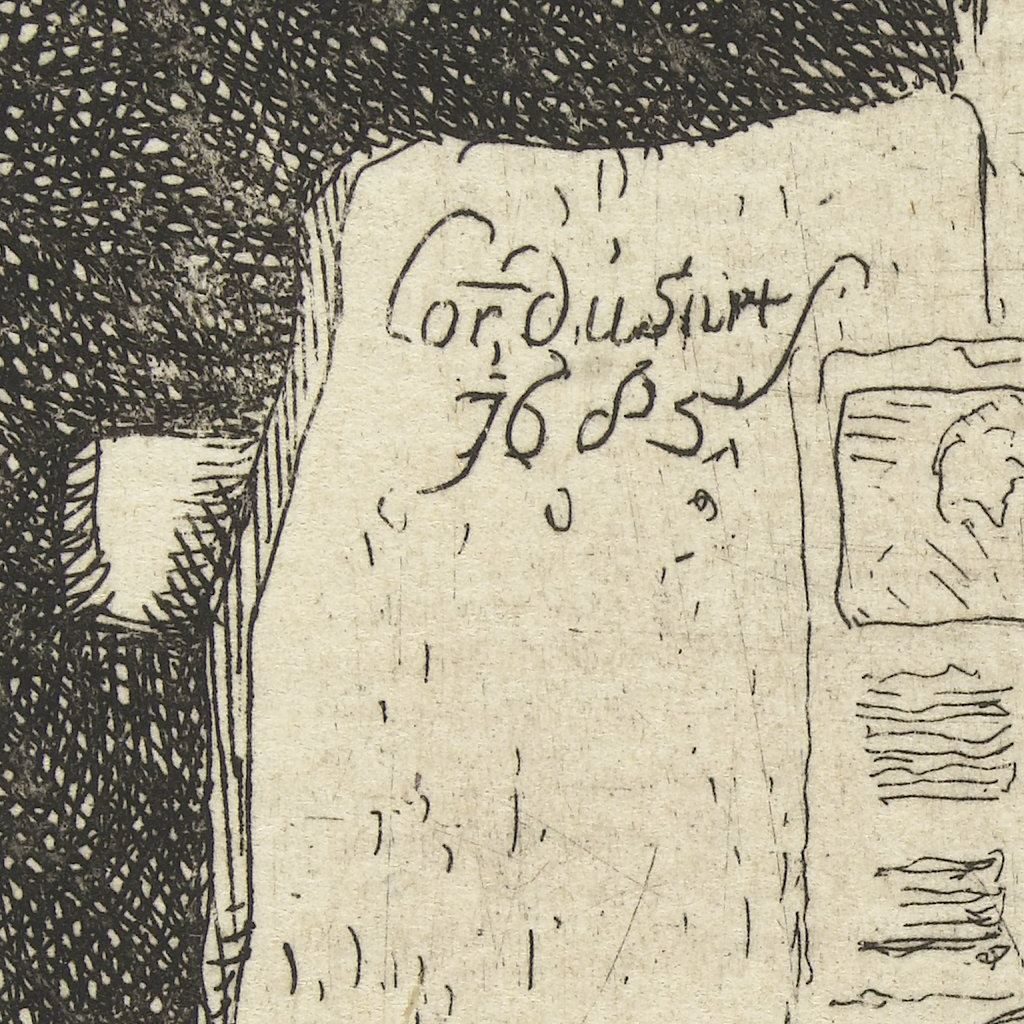 Cor. Dusart
1685.